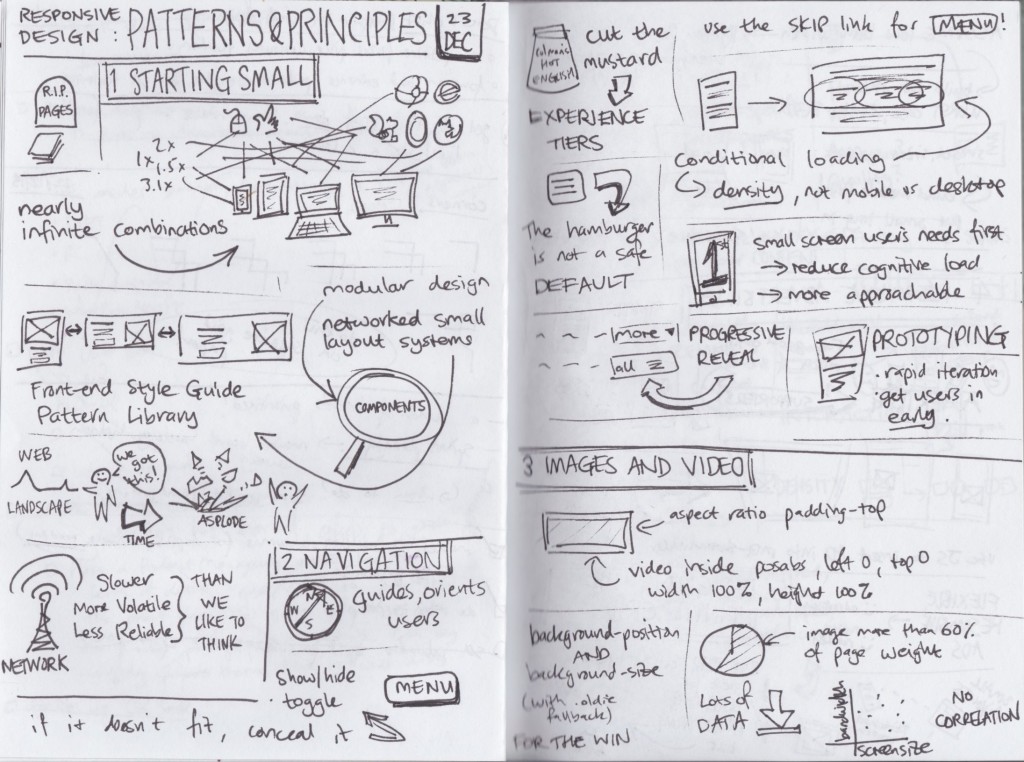 RESPONSIVE
DESIGN : PATTERNS & PRINCIPLES
23
DEC
R.I.P.
PAGES
1 STARTING SMALL
2x
1x 1.5x
3.1x
nearly
infinite combinations
modular design
networked small
layout systems
COMPONENTS
Front-end Style Guide
Pattern Library
WEB
LANDSCAPE
we
got
this!
TIME
ASPLODE
NETWORK
Slower
More Volatile
Less Reliable
THAN
WE
LIKE TO
THINK
2 NAVIGATION
N
W E
S
guides, orients
users
Show/hide
toggle
MENU
if it doesn't fit, conceal it
Colman's
HOT
ENGLISH
cut the
mustard
EXPERIENCE
TIERS
use the SKIP link for MENU!
Conditional loading
density, not mobile vs desktop
The hamburger
is not a safe
DEFAULT
1st
small screen users needs first
→ reduce cognitive load
→ more approachable
more ▾
all
PROGRESSIVE
REVEAL
PROTOTYPING
. rapid iteration
. get users in
early.
3 IMAGES AND VIDEO
aspect ratio padding-top
video inside posabs, left 0, top 0
width 100%, height 100%
background-position
AND
background-size
(with .oldie
fallback)
FOR THE WIN
image more than 60%
of page weight
Lots of
DATA
bandwidth
screensize
NO
CORRELATION